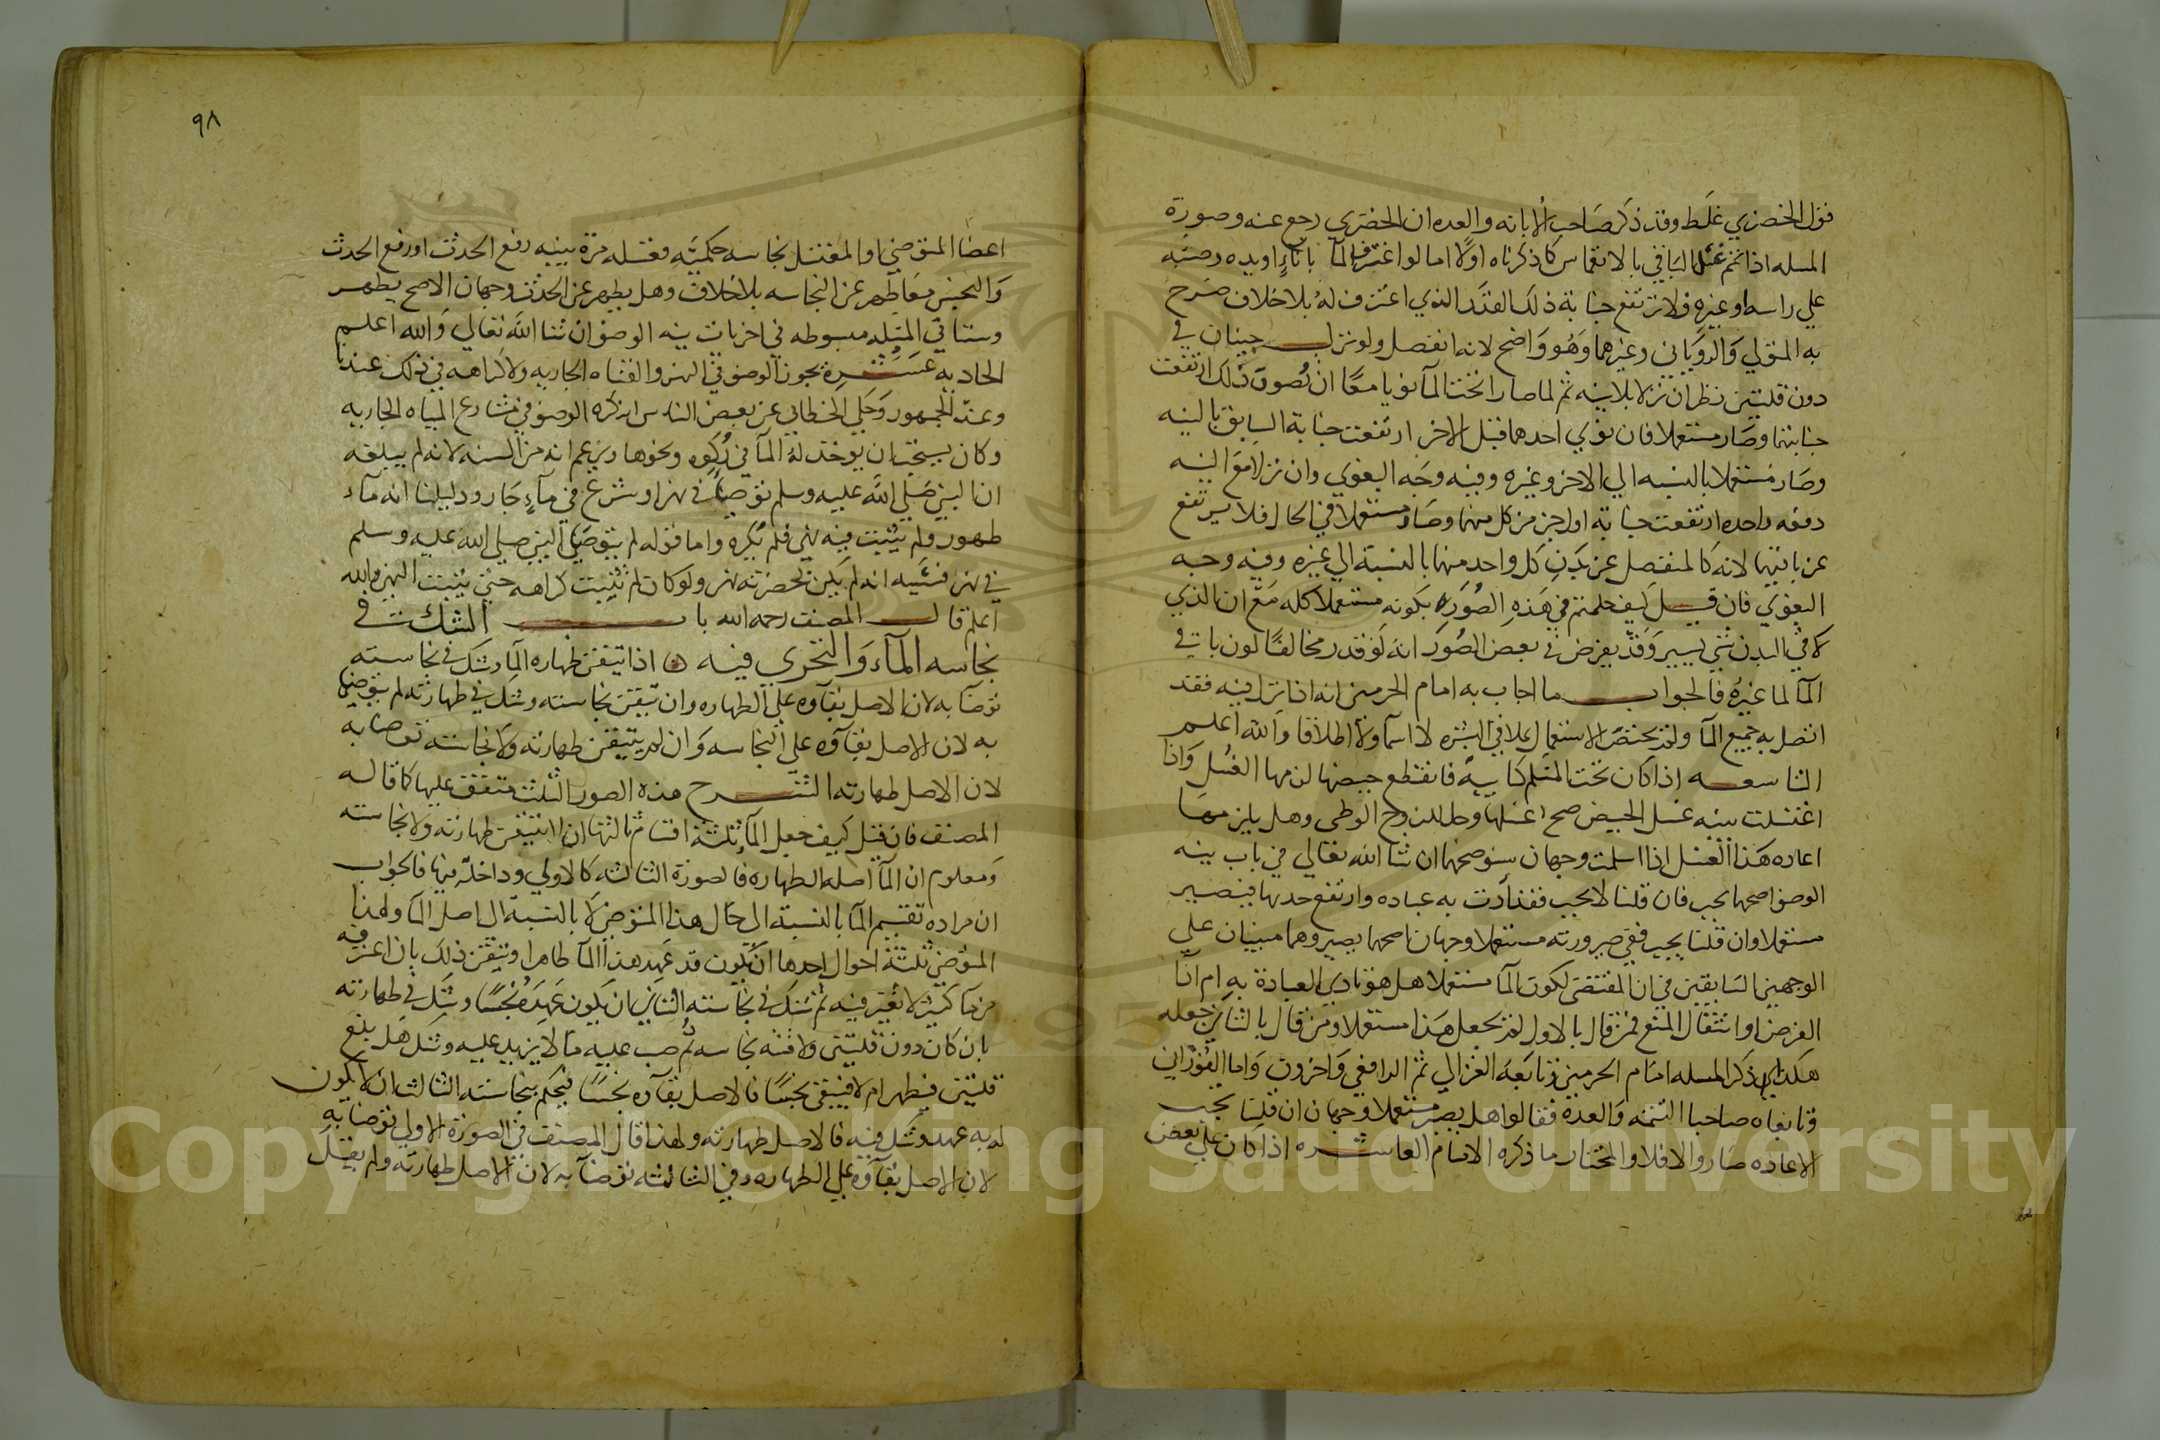 قول الخضري غلط وقد ذكر صاحب الابانه والعده ان الخضري رجع عنه وصورة
المسله اذا تمم غسل الباقي بالانغماس كما ذكرناه اولا اما لو اغترف الماء باناء او بيده وصبه
علي راسه او غيره فلا ترتفع جنابة ذلك القدر الذي اغترف له بلا خلاف صرح
به المتولي والروياني وغيرهما وهو واضح لانه انفصل ولو نزل جنبان في
دون قلتين نظر ان نزلا بلا نيه ثم لما صارا تحت الماء نويا معا ان تصور ذلك ارتفعت
جنابتهما وصار مستعملا فان نوي احدهما قبل الاخر ارتفعت جنابة السابق بالنيه
وصار مستعملا بالنسبه الي الاخر وغيره وفيه وجه البغوي وان نزلا مع النيه
دفعه واحده ارتفعت جنابة اول جزء من كل منهما وصار مستعملا في الحال فلا يرتفع
عن باقيهما لانه كالمنفصل عن بدن كل واحد منهما بالنسبة الي غيره وفيه وجه
البغوي فان قيل كيف حكمتم في هذه الصوره بكونه مستعملا كله مع ان الذي
لاقي البدن شي يسير وقد يفرض في بعض الصور انه لو قدر مخالفا للون باقي
الماء لما غيره فالجواب ما اجاب به امام الحرمين انه اذا نزل فيه فقد
اتصل به جميع الماء ولم يختص الاستعمال بملاقي البشره لا اسما ولا اطلاقا والله اعلم
التاسعه اذا كان تحت المسلم كتابيه فانقطع حيضها لزمها الغسل واذا
اغتسلت بنيه غسل الحيض صح غسلها وحل للزوج الوطي وهل يلزمها
اعاده هذا الغسل اذا اسلمت وجهان سنوضحهما ان شا الله تعالي في باب نيه
الوضو اصحهما يجب فان قلنا لا يجب فقد ادت به عباده وارتفع حدثها فيصير
مستعملا وان قلنا يجب ففي صيرورته مستعملا وجهان اصحهما يصير وهما مبنيان علي
الوجهين السابقين في ان المقتضي لكون الماء مستعملا هل هو تادي العبادة به ام ادا
الفرض او انتقال المنع فمن قال بالاول لم يجعل هذا مستعملا ومن قال بالثاني جعله
هكذا ذكر المسله امام الحرمين وتابعه الغزالي ثم الرافعي واخرون واما الفوراني
وتابعاه صاحبا التتمه والعده فقالوا هل يصير مستعملا وجهان ان قلنا يجب
الاعاده صار والا فلا والمختار ما ذكره الامام العاشره اذا كان علي بعض
٩٨
اعضا المتوضي او المغتسل نجاسه حكميه فغسله مرة بنيه رفع الحدث او رفع الحدث
والنجس معا طهر عن النجاسه بلا خلاف وهل يطهر عن الحدث وجهان الاصح يطهر
وستاتي المسله مبسوطه في اخر باب نيه الوضو ان شا الله تعالي والله اعلم
الحاديه عشره يجوز الوضو في النهر والقناه الجاريه ولا كراهه في ذلك عندنا
وعند الجمهور وحكي الخطابي عن بعض الناس انه كره الوضو في مشارع المياه الجاريه
وكان يستحب ان يوخذ له الماء في ركوه ونحوها ويزعم انه من السنه لانه لم يبلغه
ان النبي صلي الله عليه وسلم توضا في نهر او شرع في ماء جار ودليلنا انه ماء
طهور ولم يثبت فيه نهي فلم يكره واما قوله لم يتوضا النبي صلي الله عليه وسلم
في نهر فسببه انه لم يكن بحضرته نهر ولو كان لم تثبت كراهه حتي يثبت النهي والله
اعلم قال المصنف رحمه الله باب الشك في
نجاسه الماء والتحري فيه اذا تيقن طهاره الماء وشك في نجاسته
توضا به لان الاصل بقاوه علي الطهاره وان تيقن نجاسته وشك في طهارته لم يتوضا
به لان الاصل بقاوه علي النجاسه وان لم يتيقن طهارته ولا نجاسته توضا به
لان الاصل طهارته الشرح هذه الصور الثلث متفق عليها كما قاله
المصنف فان قيل كيف جعل الماء ثلثة اقسام ثالثها ان لا يتيقن طهارته ولا نجاسته
ومعلوم ان الماء اصله الطهاره فالصورة الثالثه كالاولي وداخلة فيها فالجواب
ان مراده تقسيم الماء بالنسبة الي حال هذا المتوضي لا بالنسبة الي اصل الماء ولهذا
المتوضي ثلثة احوال احدها ان يكون قد عهد هذا الماء طاهرا وتيقن ذلك بان اغترفه
من ماء كثير لا تغير فيه ثم شك في نجاسته الثاني ان يكون عهده نجسا وشك في طهارته
بان كان دون قلتين ولاقته نجاسه ثم صب عليه ما لا يزيد عليه وشك هل بلغ
قلتين فيطهر ام لا فيبقي نجسا فالاصل بقاوه نجسا فيحكم بنجاسته الثالث ان لا يكون
له به عهد وشك فيه فالاصل طهارته ولهذا قال المصنف في الصورة الاولي توضا به
لان الاصل بقاوه علي الطهاره وفي الثالثه توضا به لان الاصل طهارته ولم يقل
Copyright © King Saud University